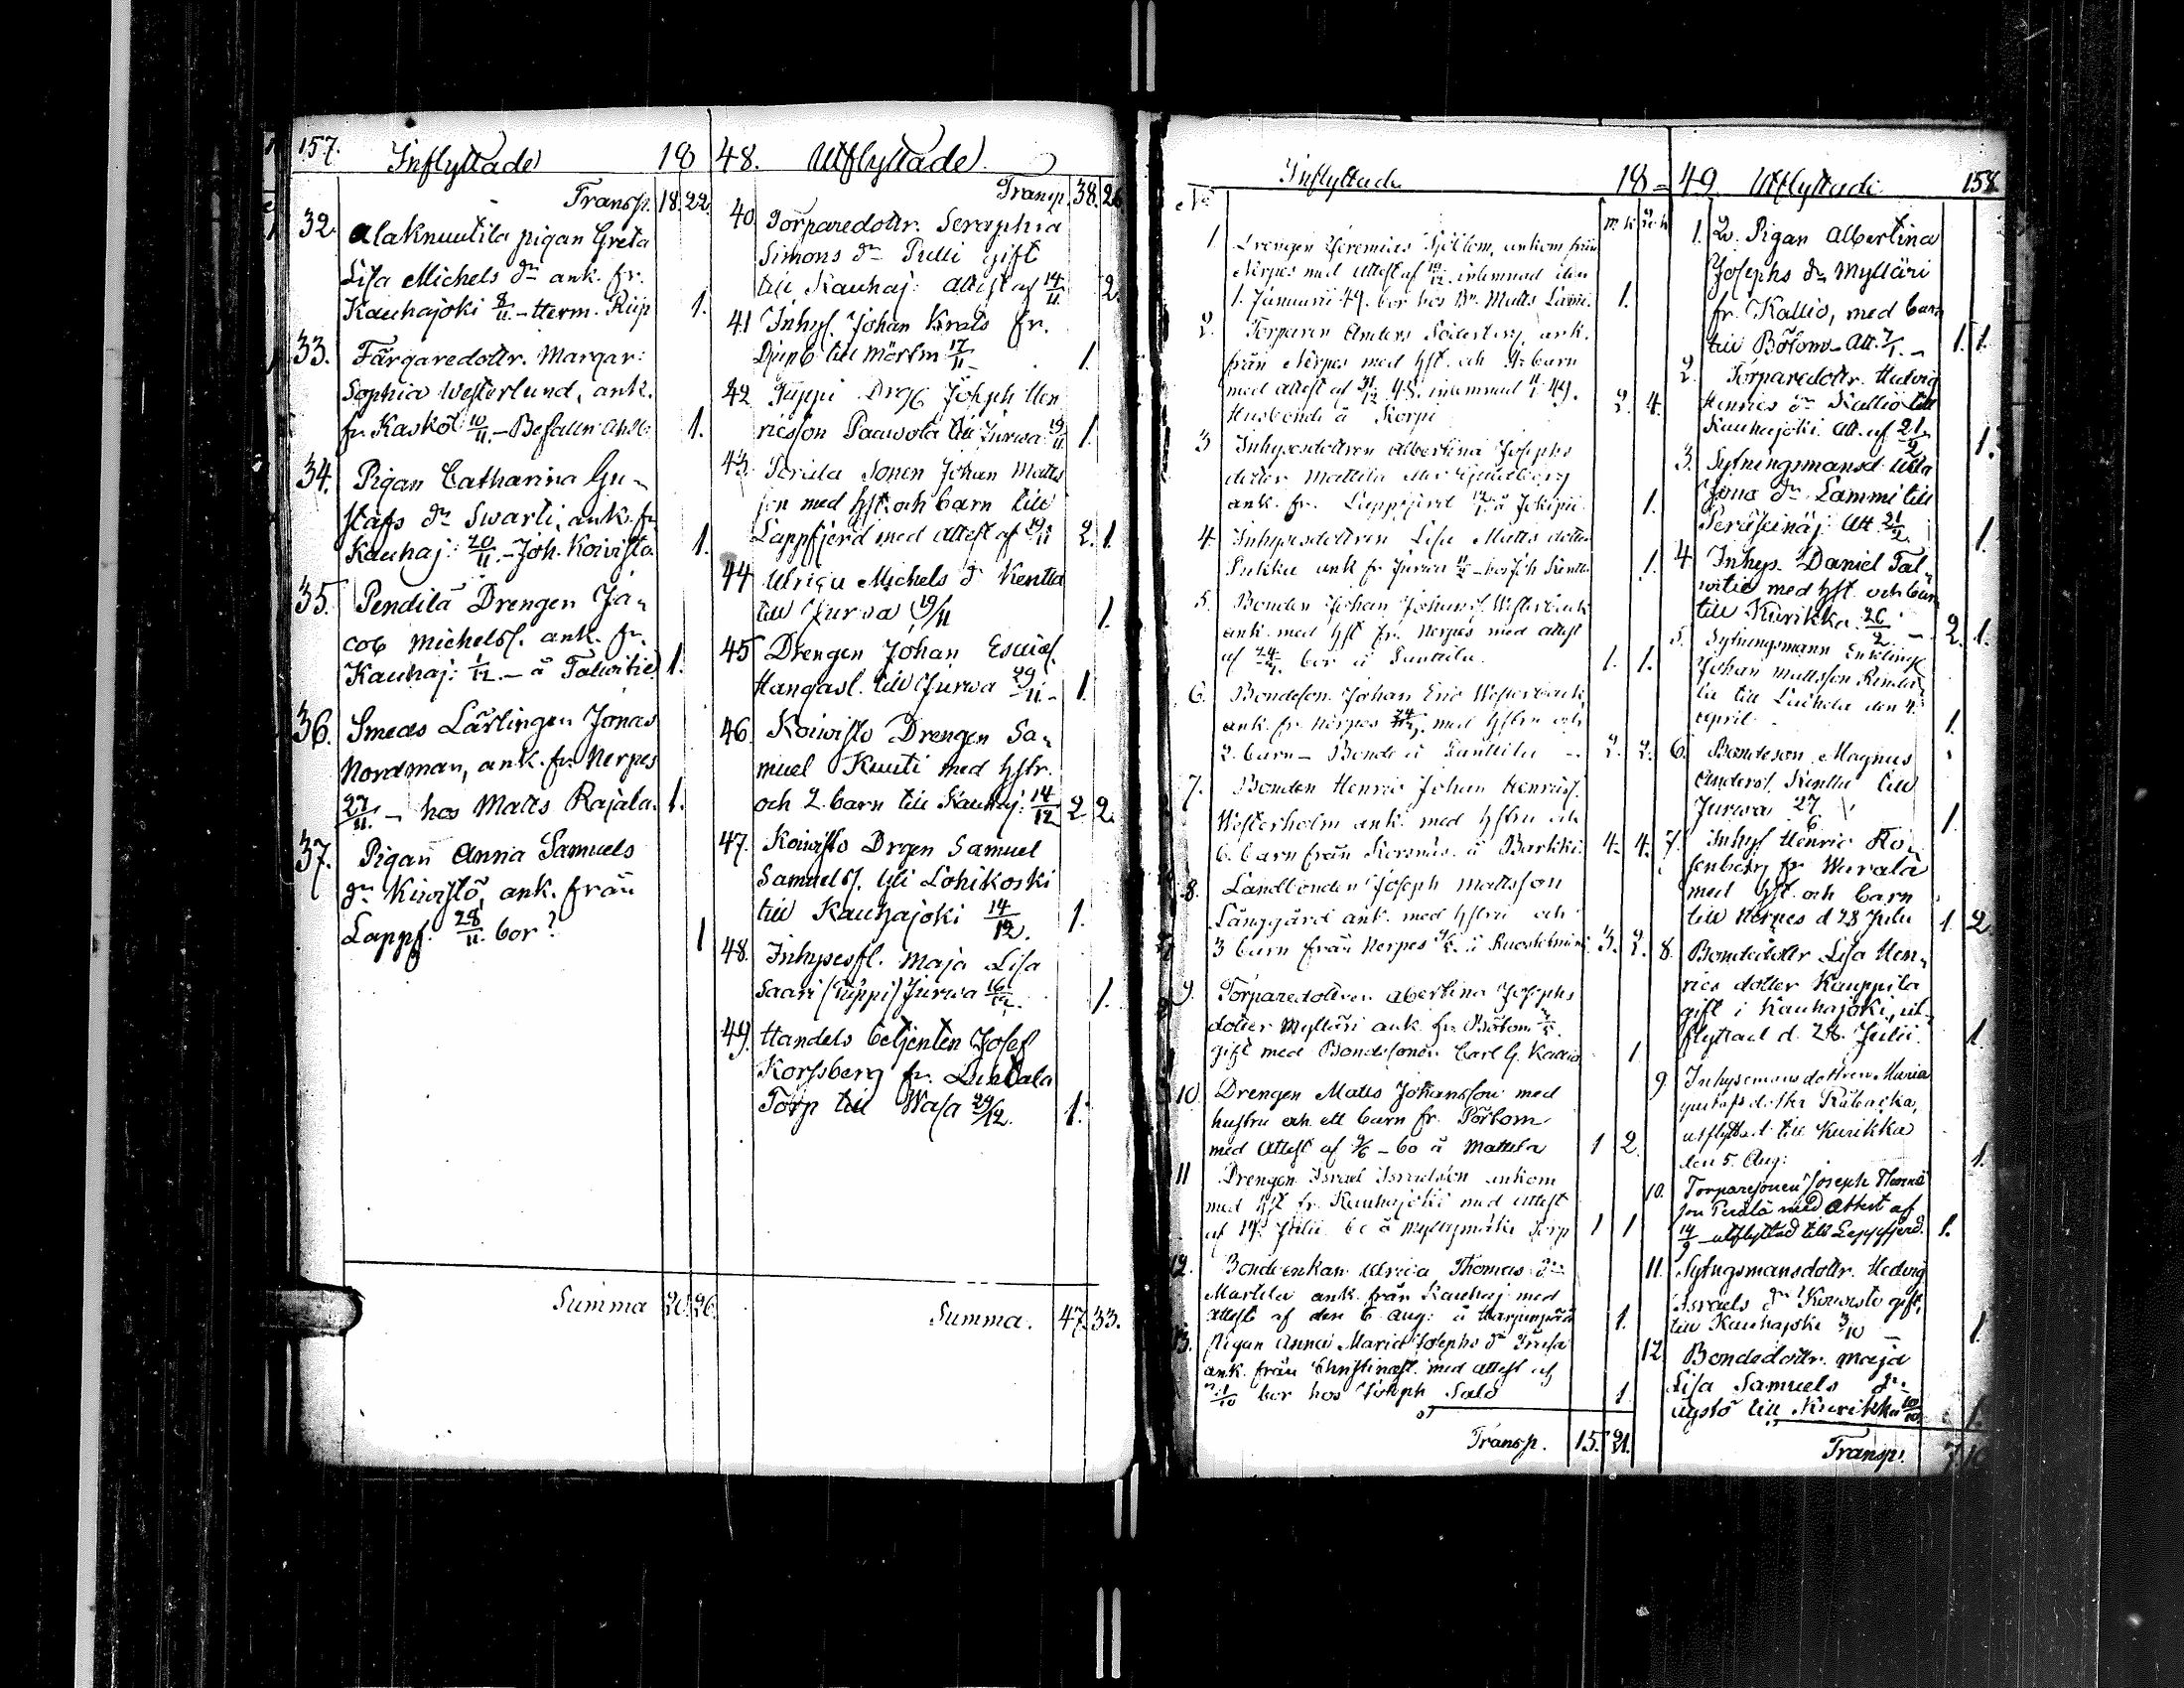 157. Inflyttade 18
Transp. 18. 22.
32. Alaknuutila pigan Greta
Lisa Michels dr ank. fr.
Kauhajoki 8/11 – Herm. Riip 1.
33. Färgaredottr. Margar:
Sophia Westerlund, ank.
fr. Kaskö 10/11 – 1.
34. Pigan Catharina Gu-
stafs dr Swarti, ank. fr.
Kauhaj: 20/11 – Joh. Koivisto 1.
35. Pendilä Drengen Ja-
cob Michelss. ank. fr.
Kauhaj: 1/12 – å Talwitie 1.
36. Smeds Lärlingen Jonas
Nordman, ank. fr. Nerpes
27/11 – hos Matts Rajala. 1.
37. Pigan Anna Samuels
dr ank. från
Lappf. 28/11. bor? 1
Summa 20. 26.
48. Utflyttade
Transp. 38. 26.
40. Torparedottr. Seraphia
Simons dr Pulli gift
till Kauhaj: Attest af 14/11 2.
41 Inhys. Johan Krats fr.
till 17/11 1.
42 Drgn Joseph Hen
ricsson Paawola till Jurwa 19/11 1.
43. Perälä Sonen Johan Matts
son med hst. och barn till
Lappfjerd med attest af 19/11 2. 1.
44 Ulrica Michels dr Kentta
till Jurwa 19/11 1.
45 Drengen Johan Esaias.
Hangasl. till Jurwa 29/11 – 1.
46. Koivisto Drengen Sa-
muel Knuti med hstr.
och 2. barn till Kauhaj: 14/12 2 2.
47. Koivisto Drgen Samuel
Samuels. Yli Lohikoski
till Kauhajoki 14/12. 1.
48. Inhysesfl. Maja Lisa
Saari (Tuppi) Jurwa 16/12. 1.
49. Handels betjenten Josef
Korssberg fr. Luhtala
Torp till Wasa 29/12. 1.
Summa. 47. 33.
Inflyttade 18
No
1. Drengen Jeremias ankom från
Nerpes med Attest af 19/12. inlemnad den
1. Januarii 49. bor hos Bn. Matts 1.
2. Torparen Anders Söderberg, ank.
från Nerpes med hst. och 4. barn
med attest af 31/12 48. inlemnad 49.
Husbonde å Korpi 2. 4.
3 Inhysesdottren Albertina Josephs
dotter Mattila
ank. fr. Lappfjärd å Jokipii. 1.
4. Inhysesdottren Lisa Matts dotter
ank fr Jurwa 1.
5. Bonden Johan Johans. Westerback
ank. med hst fr. Nerpes med attest
af bor å Panttila. 1. 1.
6. Bondeson Johan Eric Westerback
ank. fr Nerpes med hstru och
2. barn – Bonde å Panttila 2. 2.
7. Bonden Henric Johan Henrics.
Westerholm ank. med hstru och
6. barn från Korsnäs. å 4. 4.
8. Landbonden Joseph Mattsson
Långgård ank. med hstru och
3 barn från Nerpes 3. 2.
9. Torparedottren Abertina Josephs
dotter Mylläri ank. fr. Bötom
gift med Bondesonen Carl G. Kallio 1
10 Drengen Matts Johansson med
hustru och ett barn fr. Pörtom
med Attest af 9/6 – bo å Mattila 1 2.
11 Drengen Israel Israelsson ankom
med hst fr. Kauhajoki med attest
af 14. Julii bo å Myllymäki Torp 1 1
12. Bondenkan Ulrica Thomas dr
Martila ank. från Kauhaj med
attest af den 6 Aug: å Harjunpää 1.
13. Pigan Anna Maria Josephs dr
ank. från Christinæst. med attest af
1/10 bor hos Joseph Salo 1
Transp. 15. 21.
49 Utflyttade 158
1. Pigan Albertina
Josephs dr Mylläri
fr. Kallio, med barn
till Bötom – Att. 7/1. – 1. 1.
2. Torparedottr. Hedvig
Henrics dr Kallio till
Kauhajoki att. af 21/2 1.
3. Sytningsmansd. Ulla
Jonas dr Lammi till
Peräseinäj: Att 21/2. 1.
4 Inhys. Daniel Tal
witie med hst. och barn
till Kurikka. 26/2 – 2. 1.
5. Sytningsmann Enklingn
Johan Mattsson
till Laihela den 4.
april. 1.
6. Bondeson Magnus
Anders. Kentta till
Jurwa 27/6 1.
7. Inhys Henric Ro-
senberg fr Wurala
med hst. och barn
till Nerpes d 28 Julii 1 2
8. Bondedottr Lisa Hen-
rics dotter Kauppila
gift i Kauhajoki, ut-
flyttad d. 28. Julii. 1
9. Inhysemansdottren Maria
Gustafs dotter
utflyttad till Kurikka
den 5. Aug: 1.
10. Torparesonen Joseph Thomas
son Perälä med Attest af
14/9 – utflyttad till Lappfjerd. 1.
11. Sytngsmansdottr. Hedvig
Israels dr Koivisto gift
till Kauhajoki 3/10 – 1.
12 Bondedottr. Maja
Lisa Samuels dr
till Kurikka 10/10 1.
Transp. 7. 10